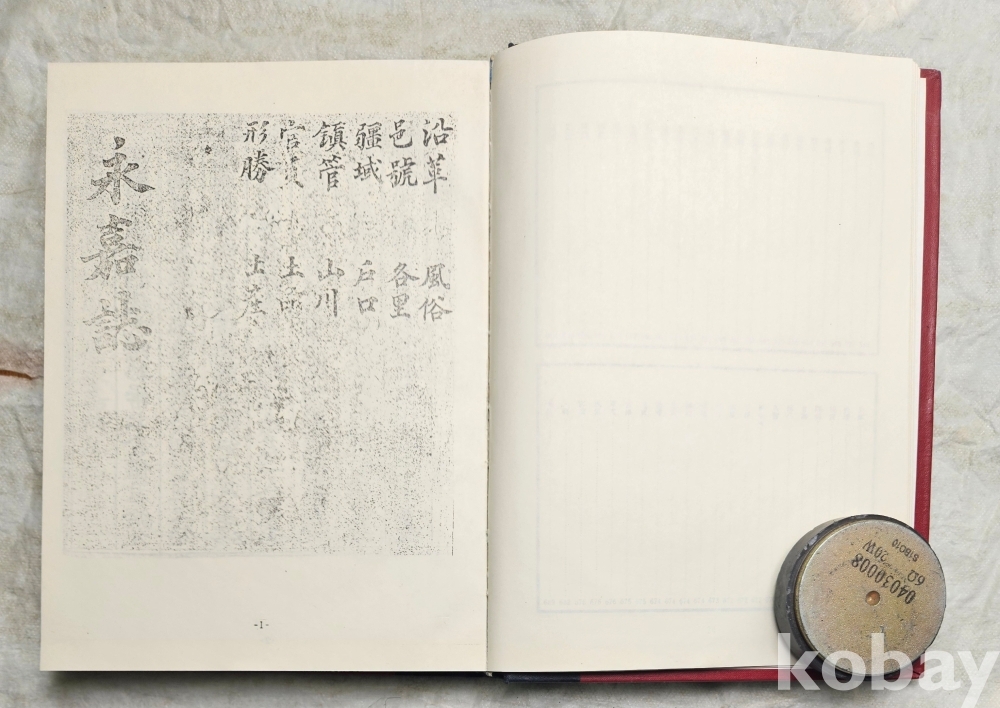 沿革 風俗
邑號 各里
疆域 戶口
鎭管 山川
官 土品
形勝 土産
永嘉誌
-1-
04030008
6Ω 20W
81BO10
kobay